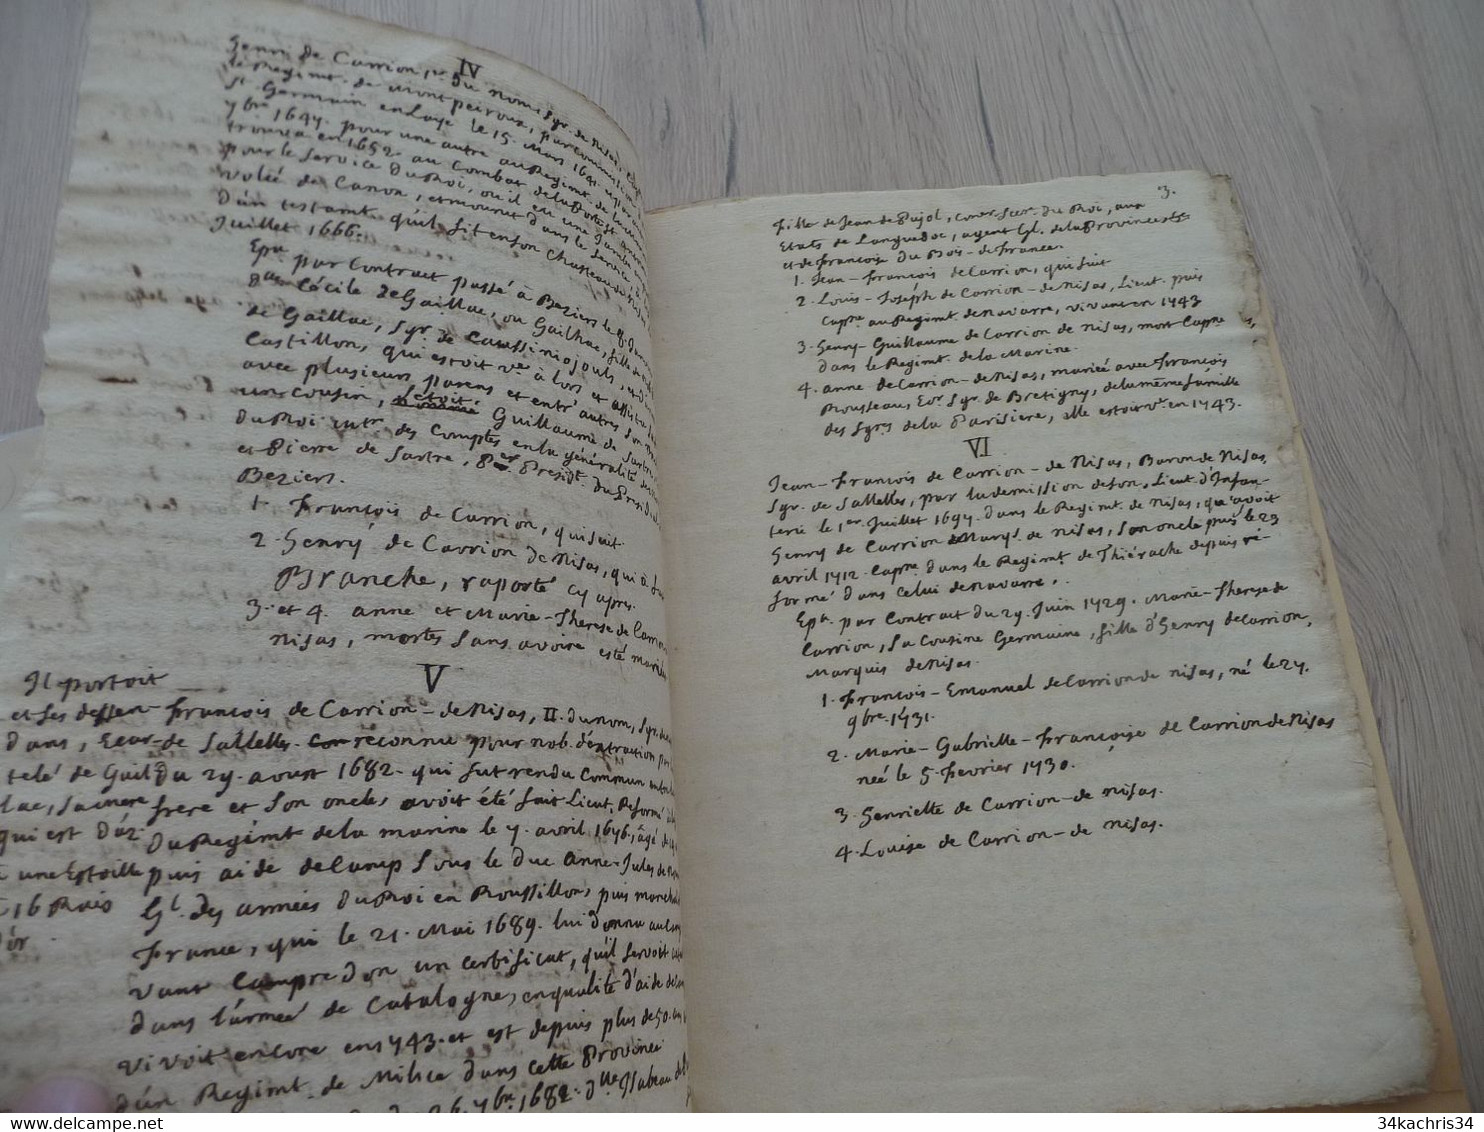 IV
Henri de Carrion 1er du nom, Sgr. de Nisas, Capne
le Regimt. de Montpeiroux, par commission
St. Germain en Laye le 15. Mars 1641. et par
7bre 1647. pour une autre au Regimt. de Lang
trouva en 1652. au Combat de la Porte St. anto
pour le Service du Roi, ou il eu une Jambe
volée de Canon, et mourut dans le Service
d'un testamt. qu'il fit en son Chateau de Nisas
Juillet 1666.
Epa. par Contract passé à Beziers le 8. Janv
dlle Cécile de Gaillac, ou Gailhac, fille de
de Gaillac, Sgr. de Caussiniojouls, et de
Castillon, qui estoit ve à lors et assistée
avec plusieurs parens et entr'autres son
un Cousin, étoit Guillaume de Sartre
du Roi intr. des Comptes en la généralité de
et Pierre de Sartre, Per. Présidt. du Presidial
Beziers.
1. François de Carrion, qui suit.
2. Henry de Carrion de Nisas, qui à fait
Branche, raporté cy apres.
3. et 4. anne et Marie-Therese de Carrion
Nisas, mortes sans avoire esté mariées
V
Il portoit
et ses dessen-
dans, Ecar-
telé de Guil
lac, sa mere
qui est d'az
à une Estoille
à 16 Rais
d'or
François de Carrion-de Nisas, II. du nom, Sgr. de
de Sallelles. reconnu pour nob. d'extraction par
Du 29. aoust 1682. qui fut rendu Commun entre
frere et son oncle, avoit été fait Lieut. Reformé
Du Regimt de la marine le 7. avril 1676, âgé de
puis aide de Camp sous le Duc Anne-Jules de No
Gl. des armées du Roi en Roussillon, puis marechal
France, qui le 21. Mai 1689. lui donna au
vant Campredon un certificat, qu'il servoit
dans l'armée de Catalogne, en qualité d'aide de Ca
vivoit encore en 1743. et est depuis plus de 50. ans
d'un Regimt. de Milice dans cette Province
7bre 1682. dlle Isabeau de
3.
fille de Jean de Pujol, Conser. Secr. du Roi, aux
Etats de Languedoc, agent Gl. de la Province
et de Françoise Du Bois-de France.
1. Jean-François de Carrion, qui suit
2. Louis-Joseph de Carrion-de Nisas, Lieut. puis
Capne au Regimt de navarre, vivant en 1743
3. Henry-Guillaume de Carrion de Nisas, mort Capne
dans le Regimt. de la Marine.
4. anne de Carrion-de Nisas, mariée avec François
Rousseau, Eer. Sgr. de Bretigny, de la même famille
des Sgrs de la Parisiere, elle estoit ve. en 1743.
VI
Jean-François de Carrion-de Nisas, Baron de Nisas,
Sgr. de Sallelles, par la demission de son, Lieut. d'Infan-
terie le 1er Juillet 1697. dans le Regimt. de Nisas, qu'avoit
Henry de Carrion Marqs. de Nisas, son oncle puis le 23
avril 1712. Capne. dans le Regimt. de Thiérache depuis ré-
formé dans celui de navarre.
Epa. par Contrat du 29. Juin 1729. Marie-Therese de
Carrion, sa Cousine Germaine, fille d'Henry de Carrion,
Marquis de Nisas.
1. François-Emanuel de Carrion de Nisas, né le 27.
9bre. 1731.
2. Marie-Gabrielle-Françoise de Carrion de Nisas
née le 5. Fevrier 1730.
3. Henriette de Carrion-de Nisas.
4. Louise de Carrion-de Nisas.
34kachris34